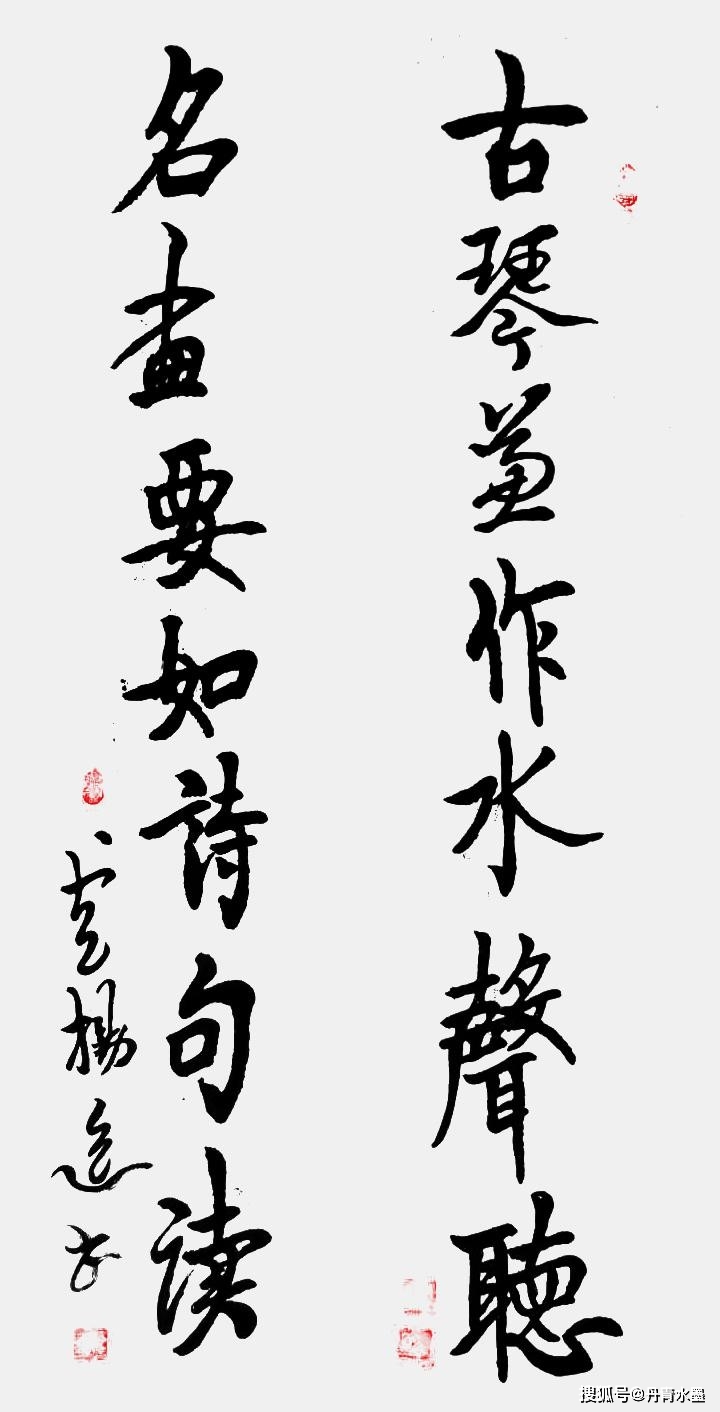 古琴兼作水聲聽
名畫要如詩句读
楊
搜狐号@丹青水墨